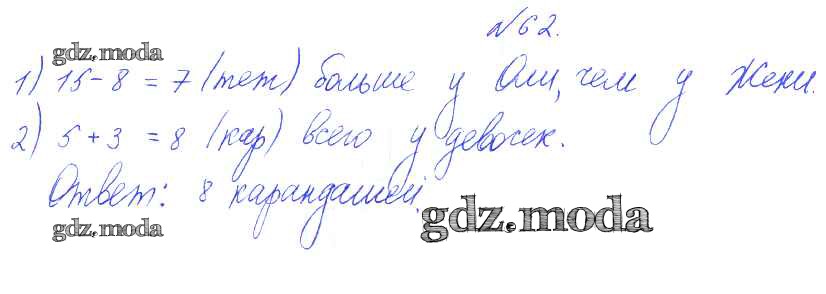 №62.
gdz.moda
1) 15-8 = 7 (тет) больше у Оли, чем у Жени.
2) 5+3 = 8 (кар) всего у девочек.
Ответ: 8 карандашей.
gdz.moda
gdz.moda